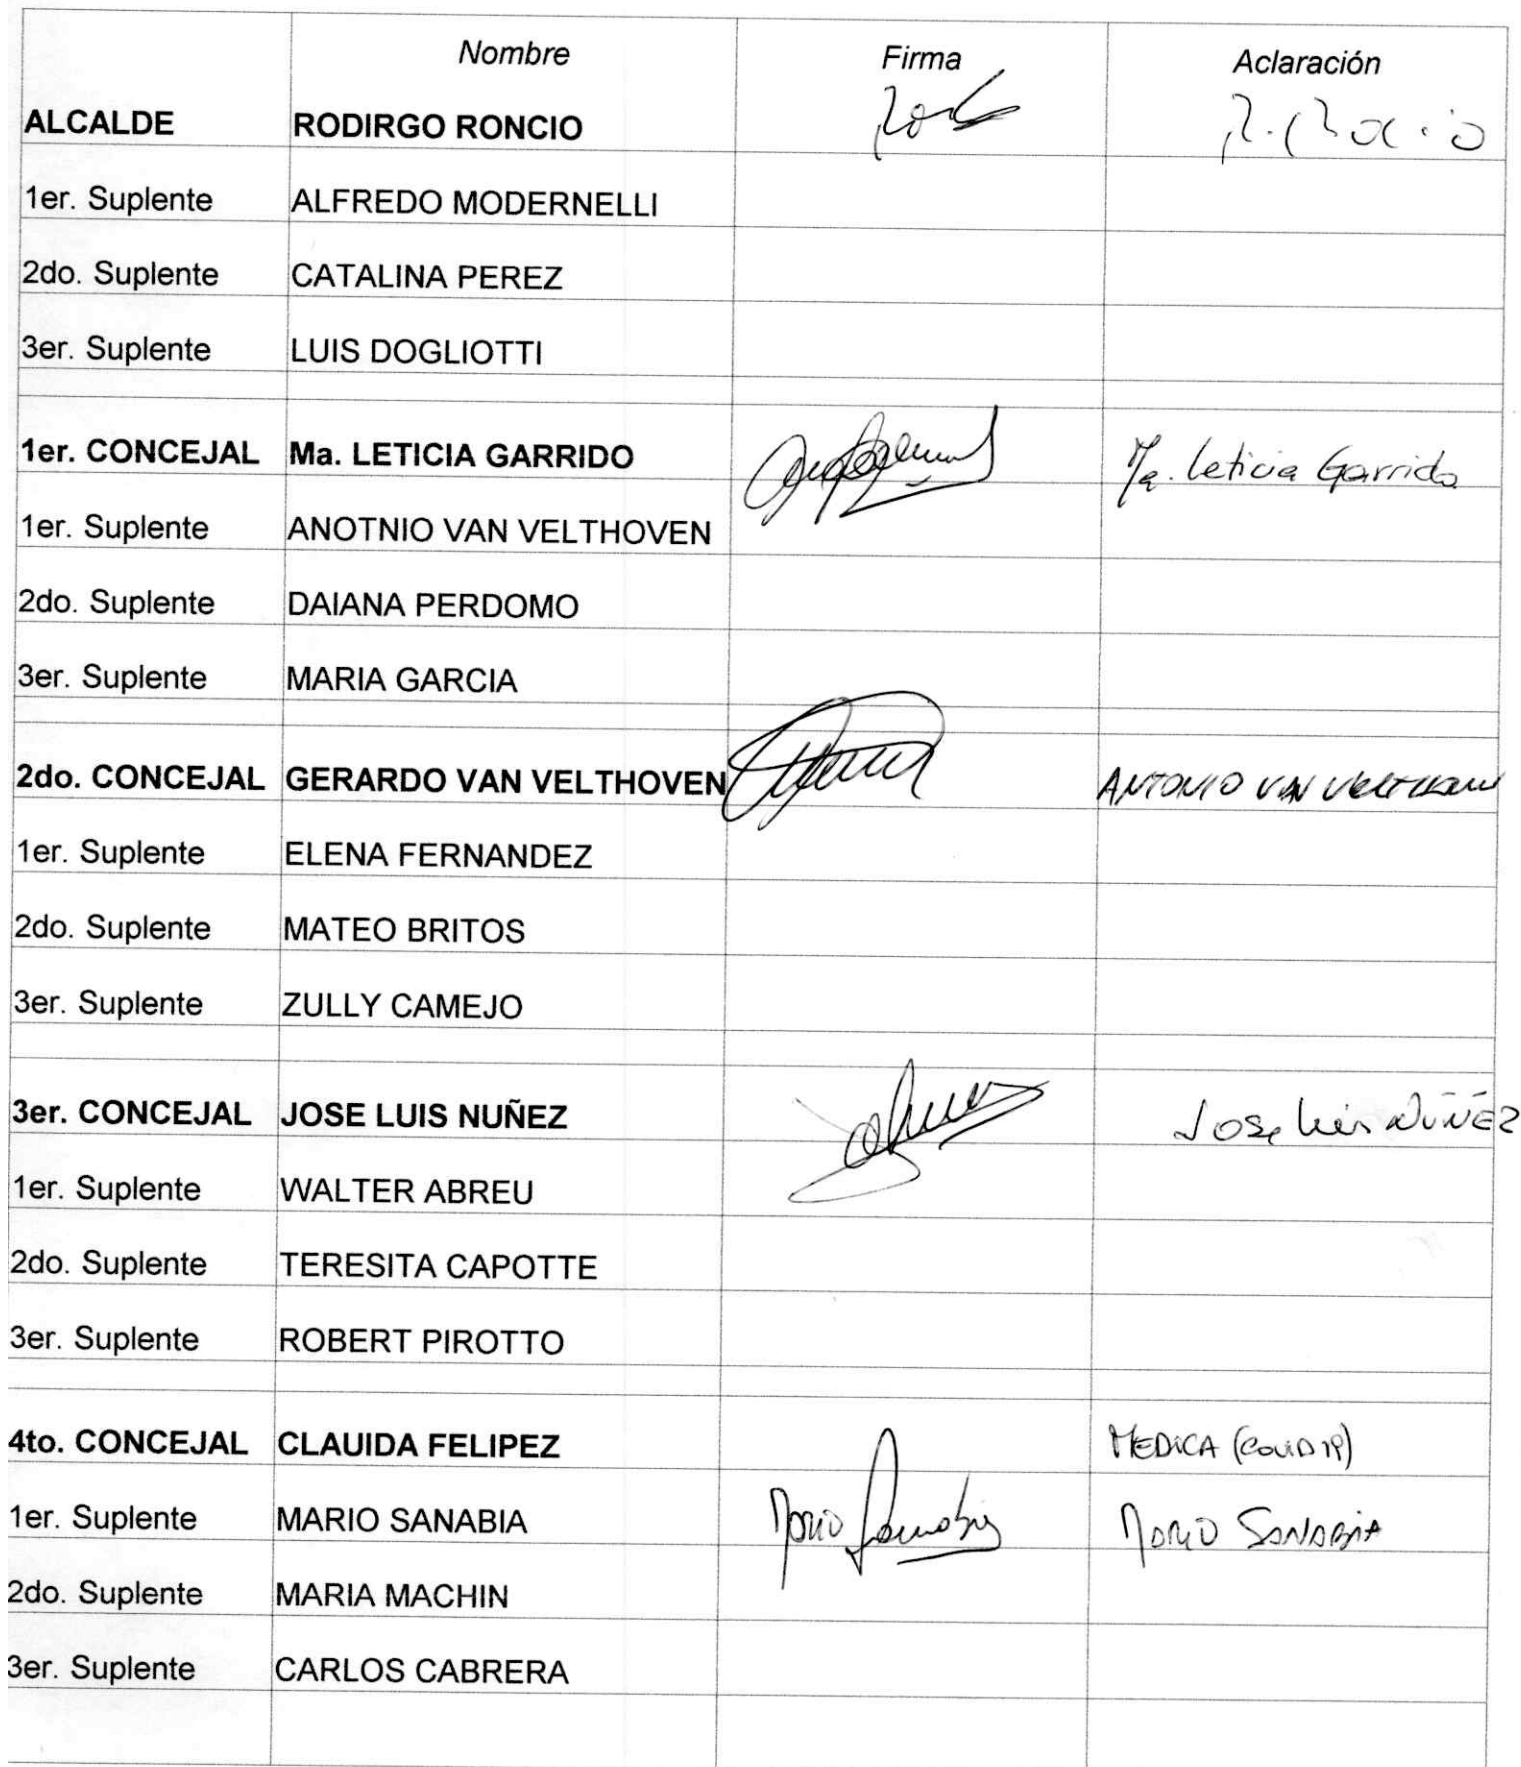 Nombre Firma Aclaración
ALCALDE RODIRGO RONCIO
1er. Suplente ALFREDO MODERNELLI
2do. Suplente CATALINA PEREZ
3er. Suplente LUIS DOGLIOTTI
1er. CONCEJAL Ma. LETICIA GARRIDO Ma. Leticia Garrido
1er. Suplente ANOTNIO VAN VELTHOVEN
2do. Suplente DAIANA PERDOMO
3er. Suplente MARIA GARCIA
2do. CONCEJAL GERARDO VAN VELTHOVEN ANTONIO VAN VELTHOVEN
1er. Suplente ELENA FERNANDEZ
2do. Suplente MATEO BRITOS
3er. Suplente ZULLY CAMEJO
3er. CONCEJAL JOSE LUIS NUÑEZ Jose Luis NÚÑEZ
1er. Suplente WALTER ABREU
2do. Suplente TERESITA CAPOTTE
3er. Suplente ROBERT PIROTTO
4to. CONCEJAL CLAUIDA FELIPEZ MEDICA (COVID 19)
1er. Suplente MARIO SANABIA Mario Sanabia MARIO SANABIA
2do. Suplente MARIA MACHIN
3er. Suplente CARLOS CABRERA